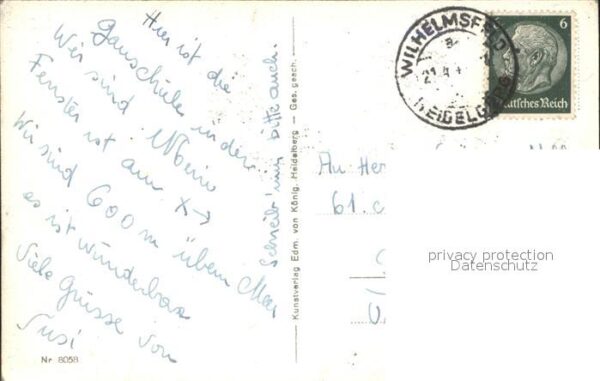 Hier ist die
Gauschule, in der
Wir sind. Mein
Fenster ist am X→
Wir sind 600 m übern Meer
es ist wunderbar
Viele Grüsse von
Susi
schreib mir bitte auch.
Nr. 8058
Kunstverlag Edm. von König, Heidelberg - Ges. gesch.
WILHELMSFELD
HEIDELBERG
6
Deutsches Reich
An Her
61.
privacy protection
Datenschutz